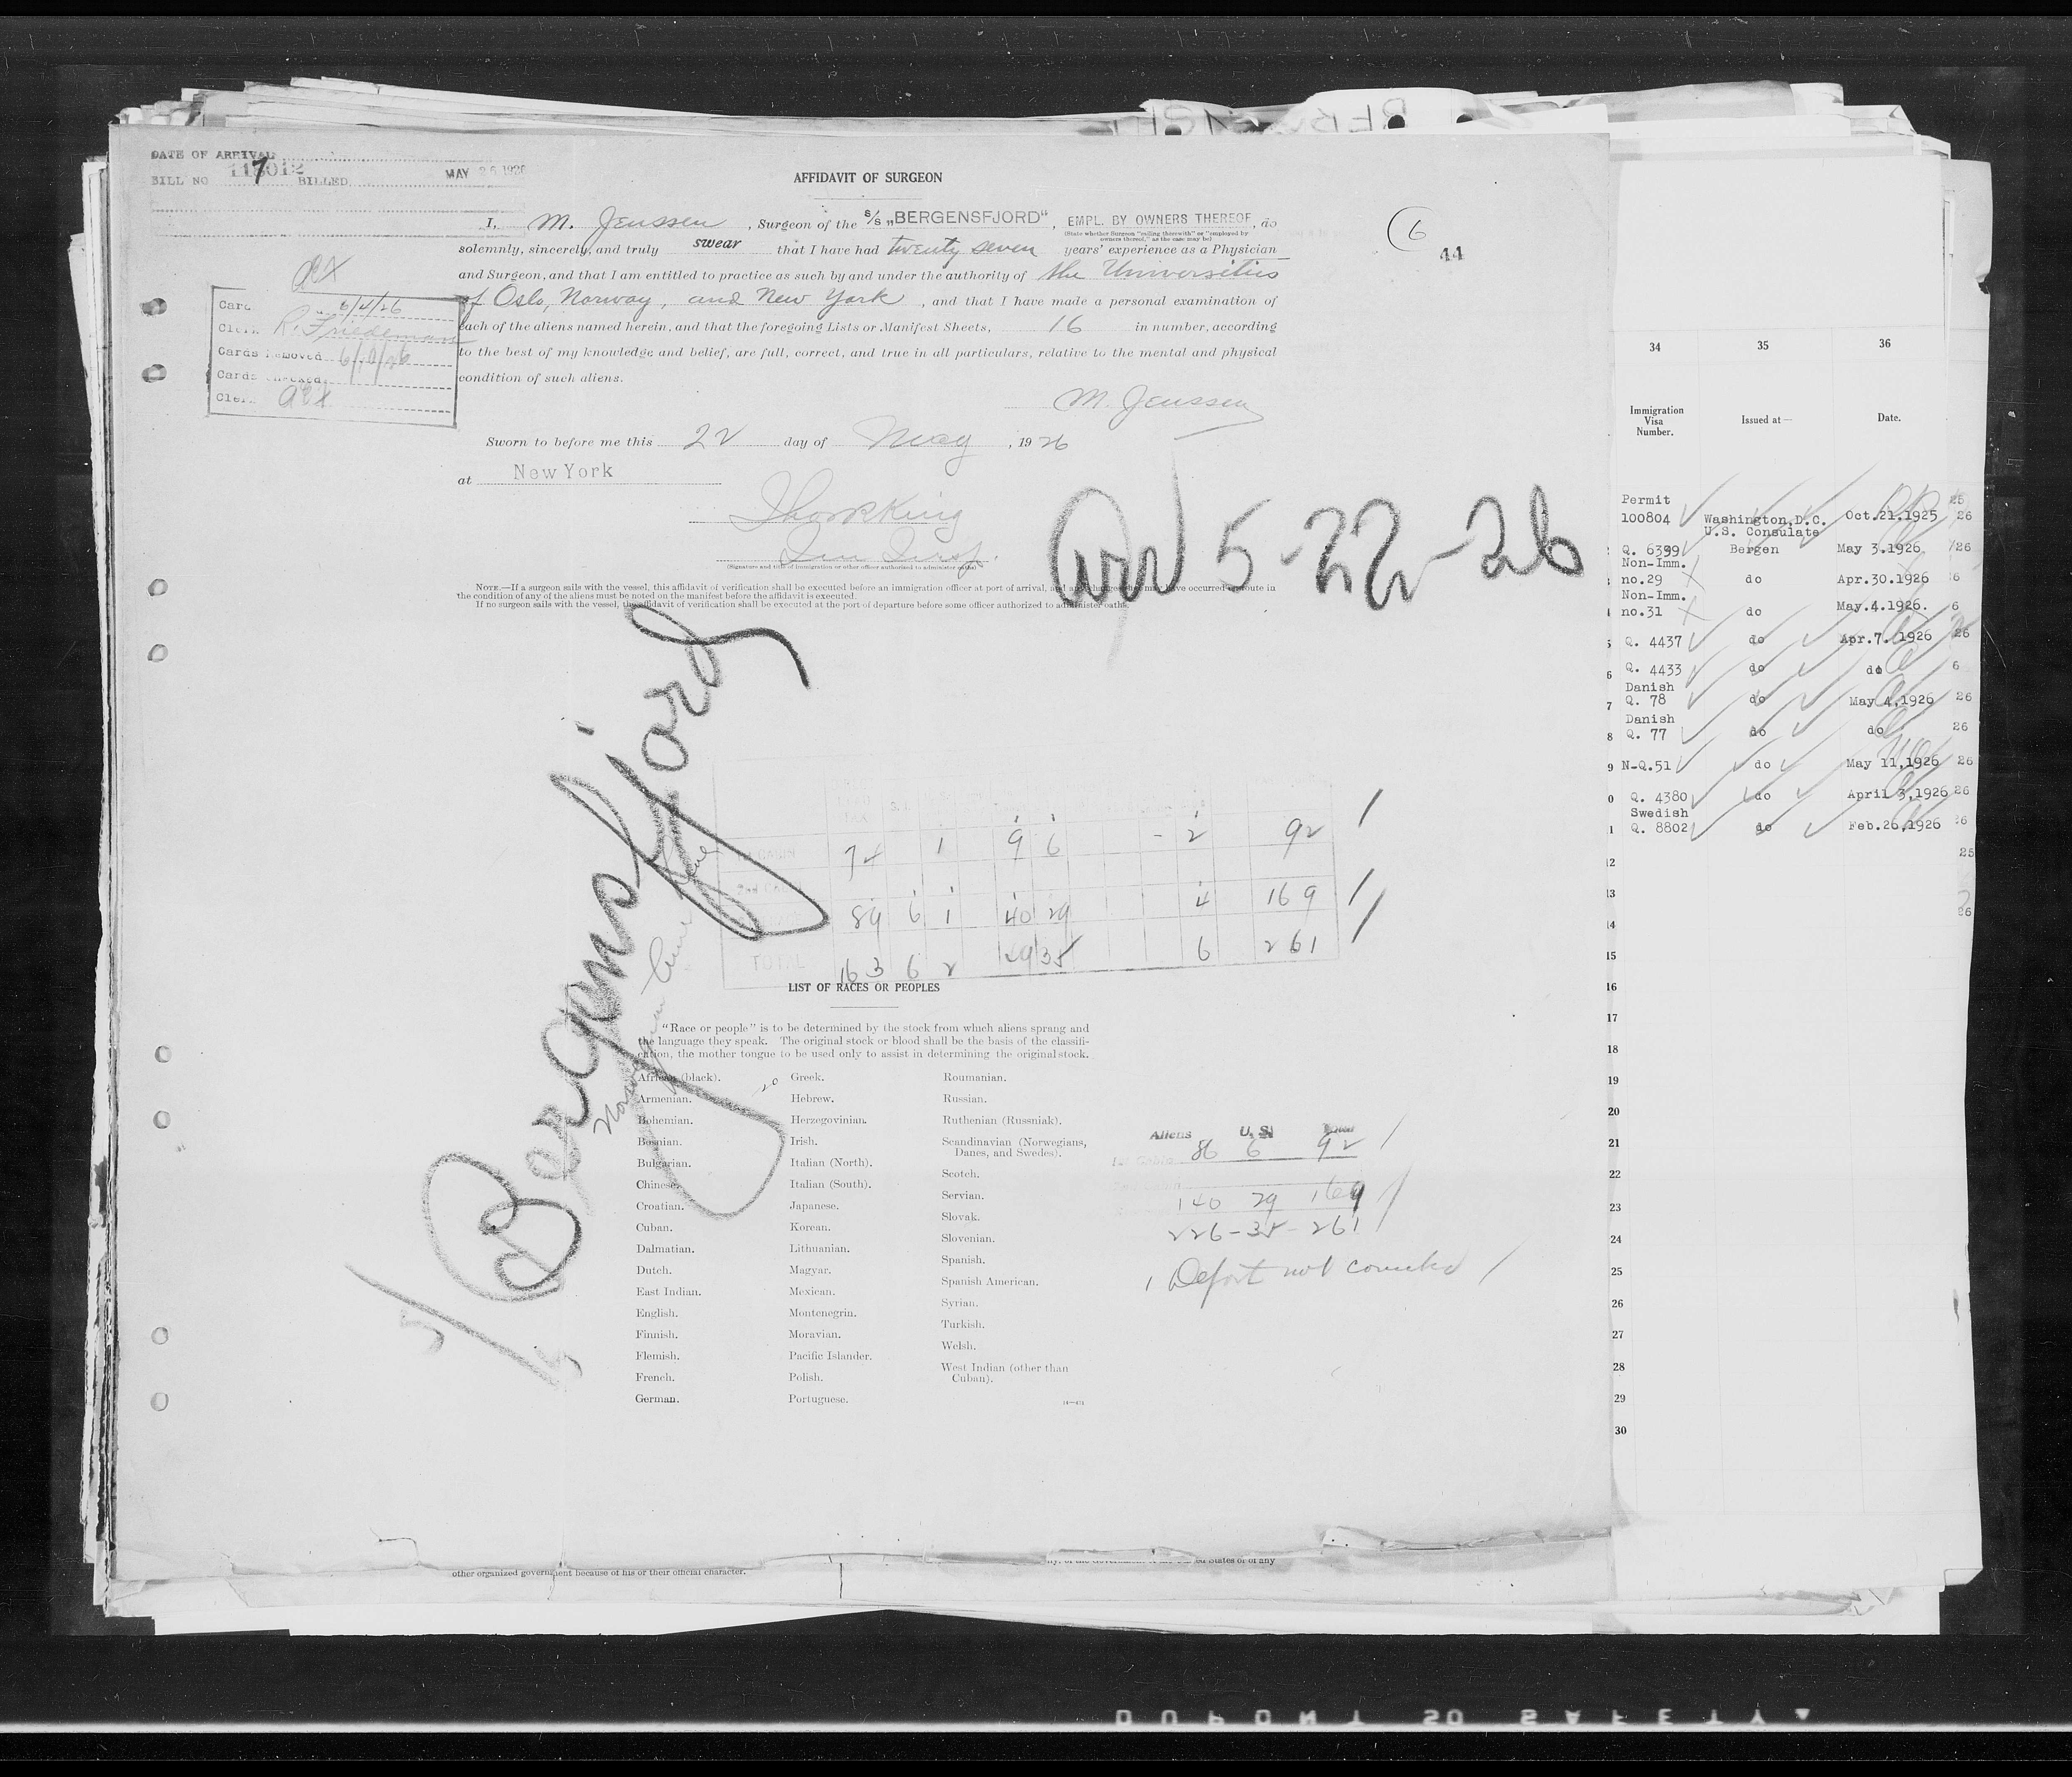 DATE OF ARRIVAL
BILL NO 117012 BILLED MAY 26 1926
AFFIDAVIT OF SURGEON
I, M. Jenssen, Surgeon of the S/S „BERGENSFJORD“, EMPL. BY OWNERS THEREOF, do
(State whether Surgeon "sailing therewith" or "employed by
owners thereof," as the case may be)
solemnly, sincerely, and truly swear that I have had twenty seven years' experience as a Physician
and Surgeon, and that I am entitled to practice as such by and under the authority of the Universities
of Oslo, Norway, and New York, and that I have made a personal examination of
each of the aliens named herein, and that the foregoing Lists or Manifest Sheets, 16 in number, according
to the best of my knowledge and belief, are full, correct, and true in all particulars, relative to the mental and physical
condition of such aliens.
M. Jenssen
Sworn to before me this 22 day of May, 1926
at New York
(Signature and title of immigration or other officer authorized to administer oaths)
6
44
Card 6/4/26
Clerk R. Friedemann
Cards Removed 6/10/26
Cards Checked
Clerk
Arr 5-22-26
NOTE.—If a surgeon sails with the vessel, this affidavit of verification shall be executed before an immigration officer at port of arrival, and any changes which may have occurred en route in
the condition of any of the aliens must be noted on the manifest before the affidavit is executed.
If no surgeon sails with the vessel, the affidavit of verification shall be executed at the port of departure before some officer authorized to administer oaths.
Bergensfjord
74 1 9 6 - 2 92
89 6 1 40 29 4 169
TOTAL 163 6 2 49 35 6 261
LIST OF RACES OR PEOPLES
"Race or people" is to be determined by the stock from which aliens sprang and
the language they speak. The original stock or blood shall be the basis of the classifi-
cation, the mother tongue to be used only to assist in determining the original stock.
African (black).
Armenian.
Bohemian.
Bosnian.
Bulgarian.
Chinese.
Croatian.
Cuban.
Dalmatian.
Dutch.
East Indian.
English.
Finnish.
Flemish.
French.
German.
Greek.
Hebrew.
Herzegovinian.
Irish.
Italian (North).
Italian (South).
Japanese.
Korean.
Lithuanian.
Magyar.
Mexican.
Montenegrin.
Moravian.
Pacific Islander.
Polish.
Portuguese.
Roumanian.
Russian.
Ruthenian (Russniak).
Scandinavian (Norwegians,
Danes, and Swedes).
Scotch.
Servian.
Slovak.
Slovenian.
Spanish.
Spanish American.
Syrian.
Turkish.
Welsh.
West Indian (other than
Cuban).
Aliens U.S. Total
86 6 92
140 29 169
226-35-261
1 Deport not counted
other organized government because of his or their official character.
34 35 36
Immigration
Visa
Number.
Issued at—
Date.
Permit
100804 Washington, D.C. Oct.21.1925
U.S. Consulate
Q. 6399 Bergen May 3.1926
Non-Imm.
no.29 do Apr.30.1926
Non-Imm.
no.31 do May.4.1926.
5 Q. 4437 do Apr.7.1926
6 Q. 4433 do do
Danish
7 Q. 78 do May 4,1926
Danish
8 Q. 77 do do
9 N-Q.51 do May 11,1926
Q. 4380 do April 3,1926
Swedish
Q. 8802 do Feb.26,1926
12
13
14
15
16
17
18
19
20
21
22
23
24
25
26
27
28
29
30
DUPONT SO SAFETY